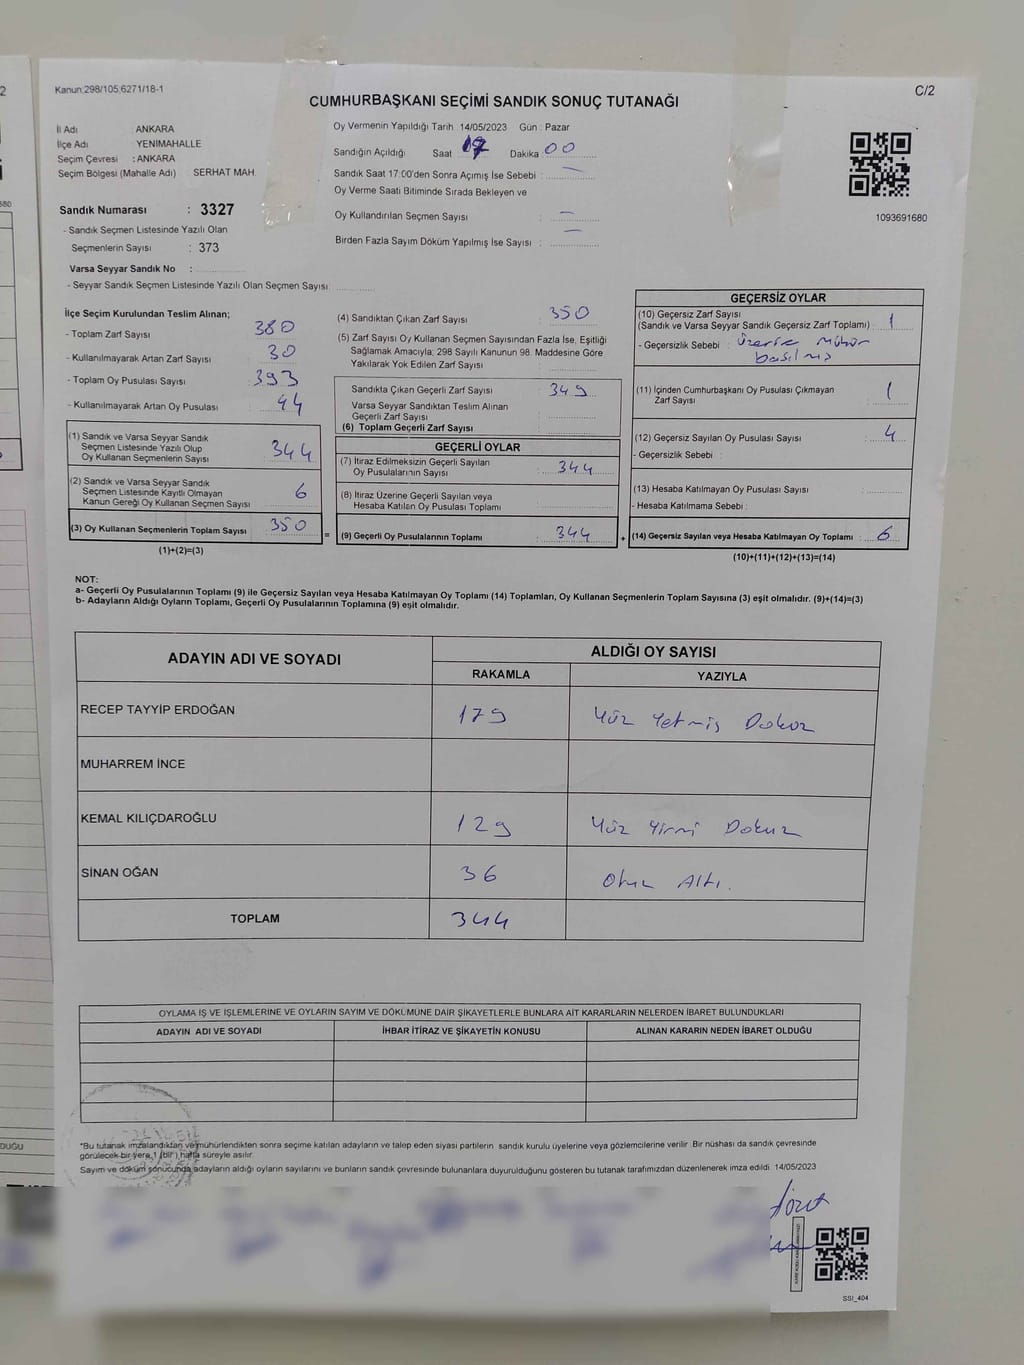 Kanun:298/105,6271/18-1
C/2
CUMHURBAŞKANI SEÇİMİ SANDIK SONUÇ TUTANAĞI
İl Adı : ANKARA
İlçe Adı YENİMAHALLE
Seçim Çevresi : ANKARA
Seçim Bölgesi (Mahalle Adı) SERHAT MAH.
Sandık Numarası : 3327
- Sandık Seçmen Listesinde Yazılı Olan
Seçmenlerin Sayısı : 373
Varsa Seyyar Sandık No :
- Seyyar Sandık Seçmen Listesinde Yazılı Olan Seçmen Sayısı:
Oy Vermenin Yapıldığı Tarih 14/05/2023 Gün : Pazar
Sandığın Açıldığı Saat 17 Dakika 00
Sandık Saat 17:00'den Sonra Açılmış İse Sebebi : —
Oy Verme Saati Bitiminde Sırada Bekleyen ve
Oy Kullandırılan Seçmen Sayısı : —
Birden Fazla Sayım Döküm Yapılmış İse Sayısı : —
1093691680
İlçe Seçim Kurulundan Teslim Alınan;
- Toplam Zarf Sayısı 380
- Kullanılmayarak Artan Zarf Sayısı 30
- Toplam Oy Pusulası Sayısı 393
- Kullanılmayarak Artan Oy Pusulası 44
(1) Sandık ve Varsa Seyyar Sandık
Seçmen Listesinde Yazılı Olup
Oy Kullanan Seçmenlerin Sayısı 344
(2) Sandık ve Varsa Seyyar Sandık
Seçmen Listesinde Kayıtlı Olmayan
Kanun Gereği Oy Kullanan Seçmen Sayısı 6
(3) Oy Kullanan Seçmenlerin Toplam Sayısı 350
(1)+(2)=(3)
=
(4) Sandıktan Çıkan Zarf Sayısı 350
(5) Zarf Sayısı Oy Kullanan Seçmen Sayısından Fazla İse, Eşitliği
Sağlamak Amacıyla; 298 Sayılı Kanunun 98. Maddesine Göre
Yakılarak Yok Edilen Zarf Sayısı
Sandıkta Çıkan Geçerli Zarf Sayısı : 349
Varsa Seyyar Sandıktan Teslim Alınan
Geçerli Zarf Sayısı
(6) Toplam Geçerli Zarf Sayısı
GEÇERLİ OYLAR
(7) İtiraz Edilmeksizin Geçerli Sayılan
Oy Pusulalarının Sayısı : 344
(8) İtiraz Üzerine Geçerli Sayılan veya
Hesaba Katılan Oy Pusulası Toplamı
(9) Geçerli Oy Pusulalarının Toplamı : 344
+
GEÇERSİZ OYLAR
(10) Geçersiz Zarf Sayısı
(Sandık ve Varsa Seyyar Sandık Geçersiz Zarf Toplamı) : 1
- Geçersizlik Sebebi : Üzerine Mühür
basılmış
(11) İçinden Cumhurbaşkanı Oy Pusulası Çıkmayan
Zarf Sayısı : 1
(12) Geçersiz Sayılan Oy Pusulası Sayısı : 4
- Geçersizlik Sebebi :
(13) Hesaba Katılmayan Oy Pusulası Sayısı :
- Hesaba Katılmama Sebebi :
(14) Geçersiz Sayılan veya Hesaba Katılmayan Oy Toplamı : 6
(10)+(11)+(12)+(13)=(14)
NOT:
a- Geçerli Oy Pusulalarının Toplamı (9) ile Geçersiz Sayılan veya Hesaba Katılmayan Oy Toplamı (14) Toplamları, Oy Kullanan Seçmenlerin Toplam Sayısına (3) eşit olmalıdır. (9)+(14)=(3)
b- Adayların Aldığı Oyların Toplamı, Geçerli Oy Pusulalarının Toplamına (9) eşit olmalıdır.
ADAYIN ADI VE SOYADI ALDIĞI OY SAYISI
RAKAMLA YAZIYLA
RECEP TAYYİP ERDOĞAN 179 Yüz Yetmiş Dokuz
MUHARREM İNCE
KEMAL KILIÇDAROĞLU 129 Yüz Yirmi Dokuz
SİNAN OĞAN 36 Otuz Altı.
TOPLAM 344
OYLAMA İŞ VE İŞLEMLERİNE VE OYLARIN SAYIM VE DÖKÜMÜNE DAİR ŞİKAYETLERLE BUNLARA AİT KARARLARIN NELERDEN İBARET BULUNDUKLARI
ADAYIN ADI VE SOYADI İHBAR İTİRAZ VE ŞİKAYETİN KONUSU ALINAN KARARIN NEDEN İBARET OLDUĞU
*Bu tutanak imzalandıktan ve mühürlendikten sonra seçime katılan adayların ve talep eden siyasi partilerin sandık kurulu üyelerine veya gözlemcilerine verilir. Bir nüshası da sandık çevresinde
görülecek bir yere 1 (bir) hafta süreyle asılır.
Sayım ve döküm sonucunda adayların aldığı oyların sayılarını ve bunların sandık çevresinde bulunanlara duyurulduğunu gösteren bu tutanak tarafımızdan düzenlenerek imza edildi. 14/05/2023
SSI_404